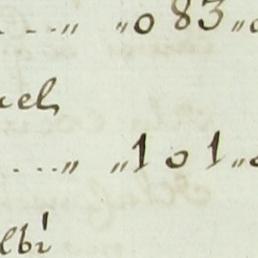 ....„ „083„
uel,
....„ „101„
lbi